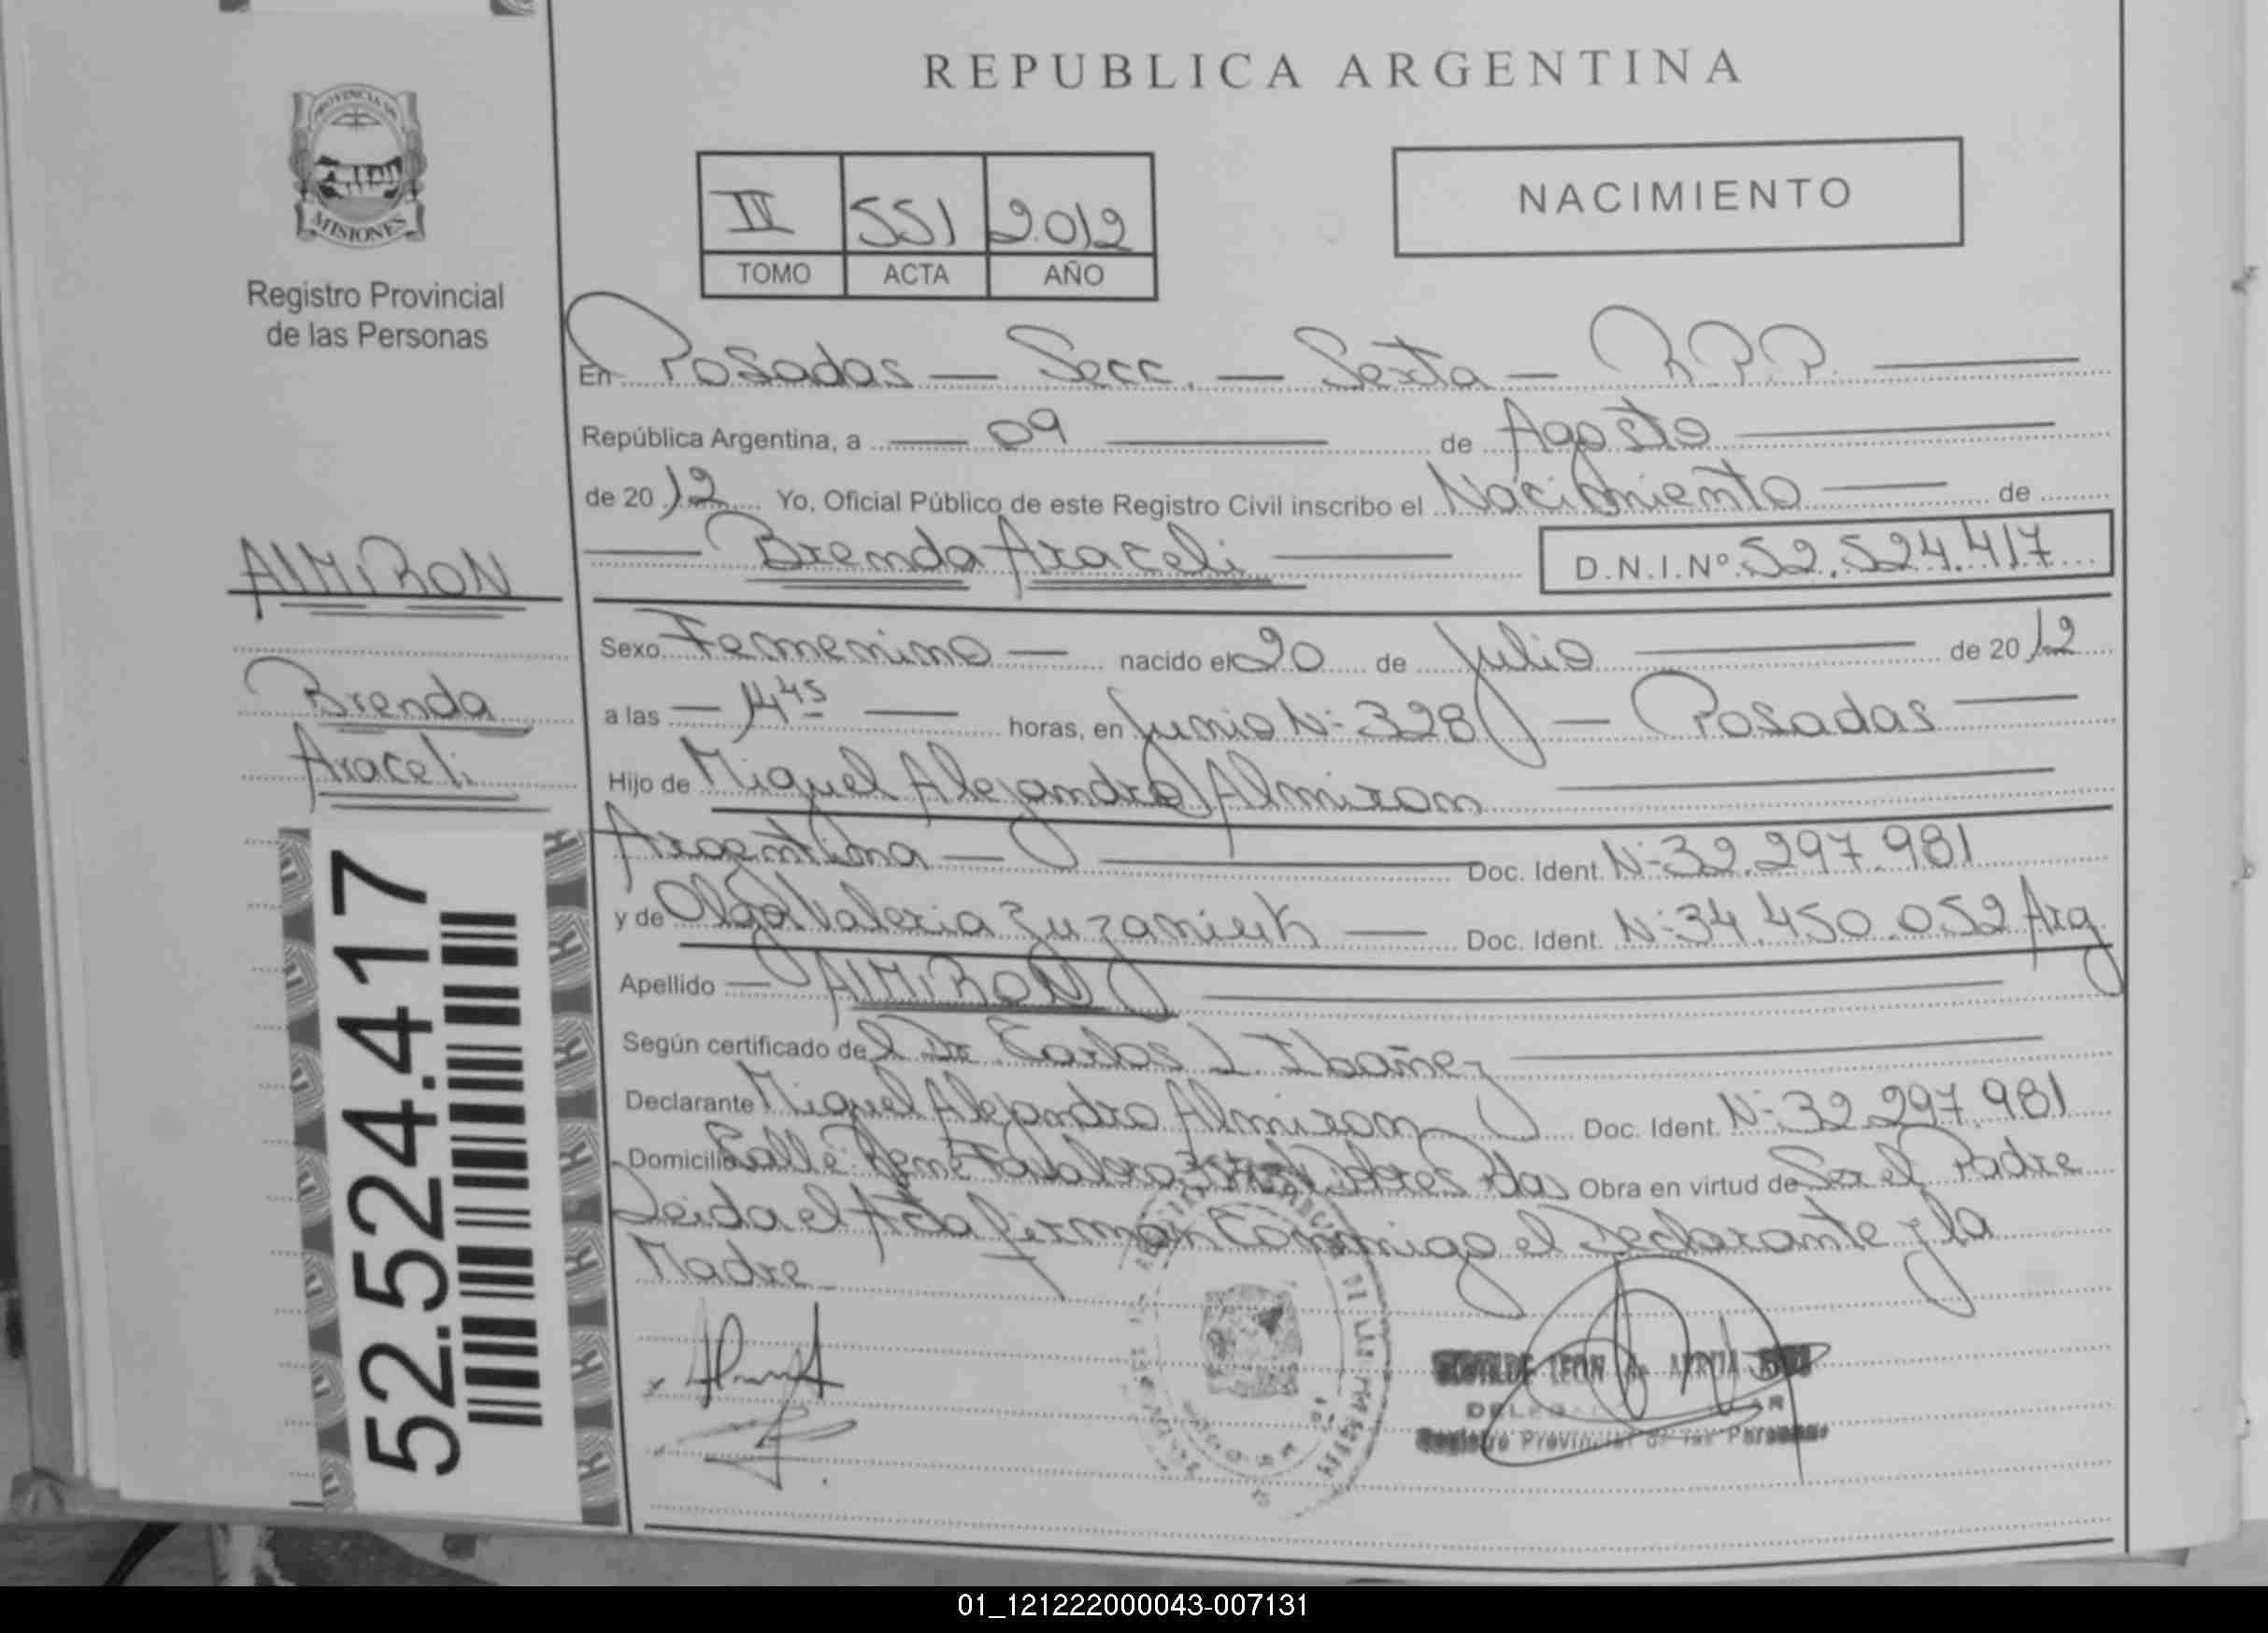 REPUBLICA ARGENTINA
PROVINCIA DE
MISIONES
Registro Provincial
de las Personas
II 551 2.012
TOMO ACTA AÑO
NACIMIENTO
En Posadas — Secc. — Sexta — R.P.P.
República Argentina, a — 09 — de Agosto
de 2012 Yo, Oficial Público de este Registro Civil inscribo el Nacimiento — de
— Brenda Araceli — D.N.I.Nº 52.524.417
AlMiRON
Brenda
Araceli
52.524.417
Sexo Femenino — nacido el 20 de Julio — de 2012
a las — 14 45 — horas, en Junio Nº 328 — Posadas —
Hijo de Miguel Alejandro Almiron
Argentina — Doc. Ident. Nº 32.297.981
y de Olga Valeria — Doc. Ident. Nº 34.450.052 Arg
Apellido — AlMiRON
Según certificado del Dr. Carlos L. Ibañez
Declarante Miguel Alejandro Almiron Doc. Ident. Nº 32.297.981
Domicilio Calle Obra en virtud de Ser el Padre
Leida el Acta firman Conmigo el Declarante y la
Madre
LEON de
Registro Provincial de las Personas
01_121222000043-007131